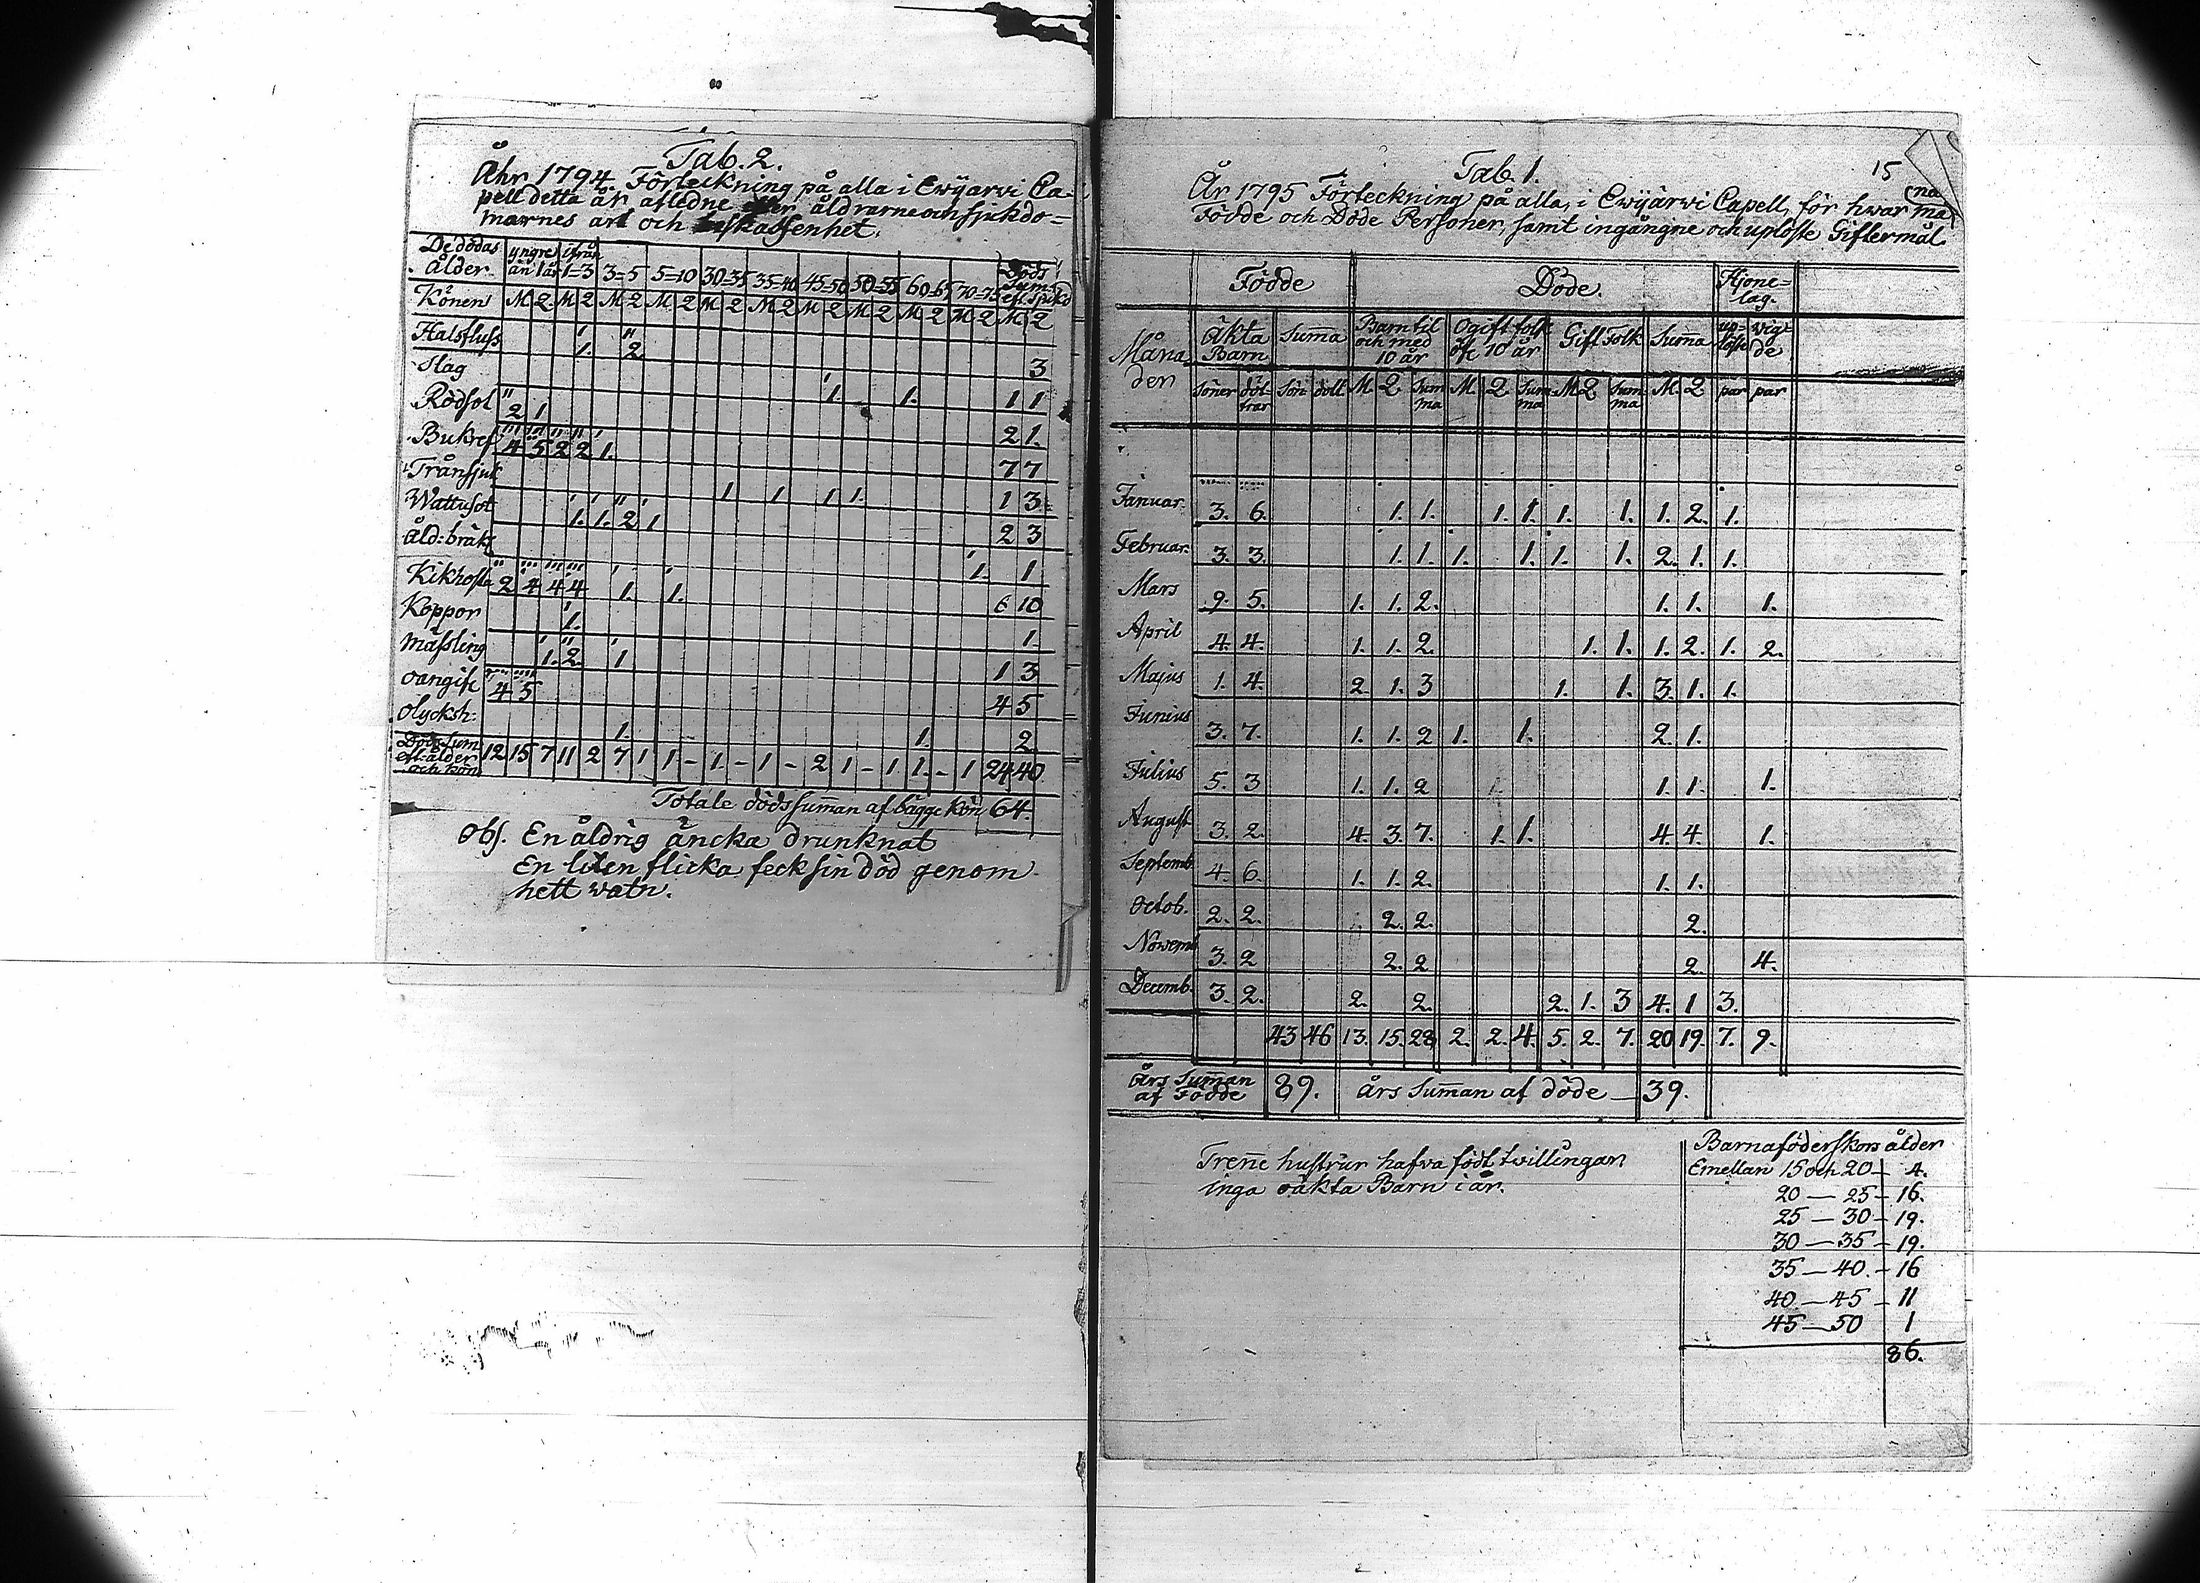 Tab. 2.
Åhr 1794. Förteckning på alla i Ewijärwi Ca=
pell detta år afledne efter åldrarne och sjukdo=
marnes art och beskaffenhet.
De dödas ålder yngre än 1 år ifrån 1=3 3=5 5=10 30=35 35=40 45=50 50=55 60=65 70=75 Döds Sum: eft. Sjukd
Könen M Q M Q M Q M Q M Q M Q M Q M Q M Q M Q M Q
Halsfluss 1. 2 3
Slag 1. 1. 1 1
Rödsot 2 1 2 1.
Bukref 4 5 2 2 1. 7 7
Trånsjuk 1 1 1 1. 1 3
Wattusot 1. 1. 2 1 2 3
Åld: bräkl 1. 1
Kikhosta 2 4 4 4 1. 1. 6 10
Koppor 1. 1.
Mässling 1. 2 1 1 3
oangifc 4 5 4 5
olycksh: 1. 1. 2
Döds Sum eft: ålder och kön 12 15 7 11 2 7 1 1 - 1. - 1 - 2 1 - 1 1. - 1 24 40
Totale dödssumman af bägge kön 64.
Obs. En åldrig äncka drunknat
En liten flicka feck sin död genom
hett watn.
15
Tab. 1.
År 1795 Förteckning på alla, i Ewijärwi Capell, för hwar må
na
Födde och Döde Personer, samt ingångne och uplöste Giftermål
Födde Döde. Hjone=
lag.
Måna
den
Äkta Barn Summa Barn til och med 10 år Ogift folk öfc 10 år Gift Folk Summa up= löste wig de
Söner döt trar Sön dött M. Q. Sum ma M. Q. Sum ma M. Q. Sum ma M. Q. par par
Januar. 3. 6. 1. 1. 1. 1. 1. 1. 1. 2. 1.
Februar. 3. 3. 1. 1. 1. 1. 1. 1. 2. 1. 1.
Mars 9. 5. 1. 1. 2. 1. 1. 1.
April 4. 4. 1. 1. 2. 1. 1. 1. 2. 1. 2.
Majus 1. 4. 2. 1. 3 1. 1. 3. 1. 1.
Junius 3. 7. 1. 1. 2 1. 1. 2. 1.
Julius 5. 3 1. 1. 2 1. 1. 1.
August 3. 2. 4. 3. 7. 1. 1. 4. 4. 1.
Septemb 4. 6. 1. 1. 2. 1. 1.
Octob. 2. 2. 2. 2. 2.
Nowemb 3. 2 2. 2 2. 4.
Decemb. 3. 2. 2. 2. 2. 1. 3 4. 1 3.
43 46 13. 15. 28 2. 2. 4. 5. 2. 7. 20 19. 7. 9.
Års Summan
af Födde 89. års Summan af döde 39.
Trenne hustrur hafva födt twillingar
inga oäkta Barn i år.
Barnaföderskors ålder
Emellan 15 och 20 — 4.
20 — 25 — 16.
25 — 30 — 19.
30 — 35 — 19.
35 — 40. — 16
40 — 45 — 11
45 — 50 1
86.